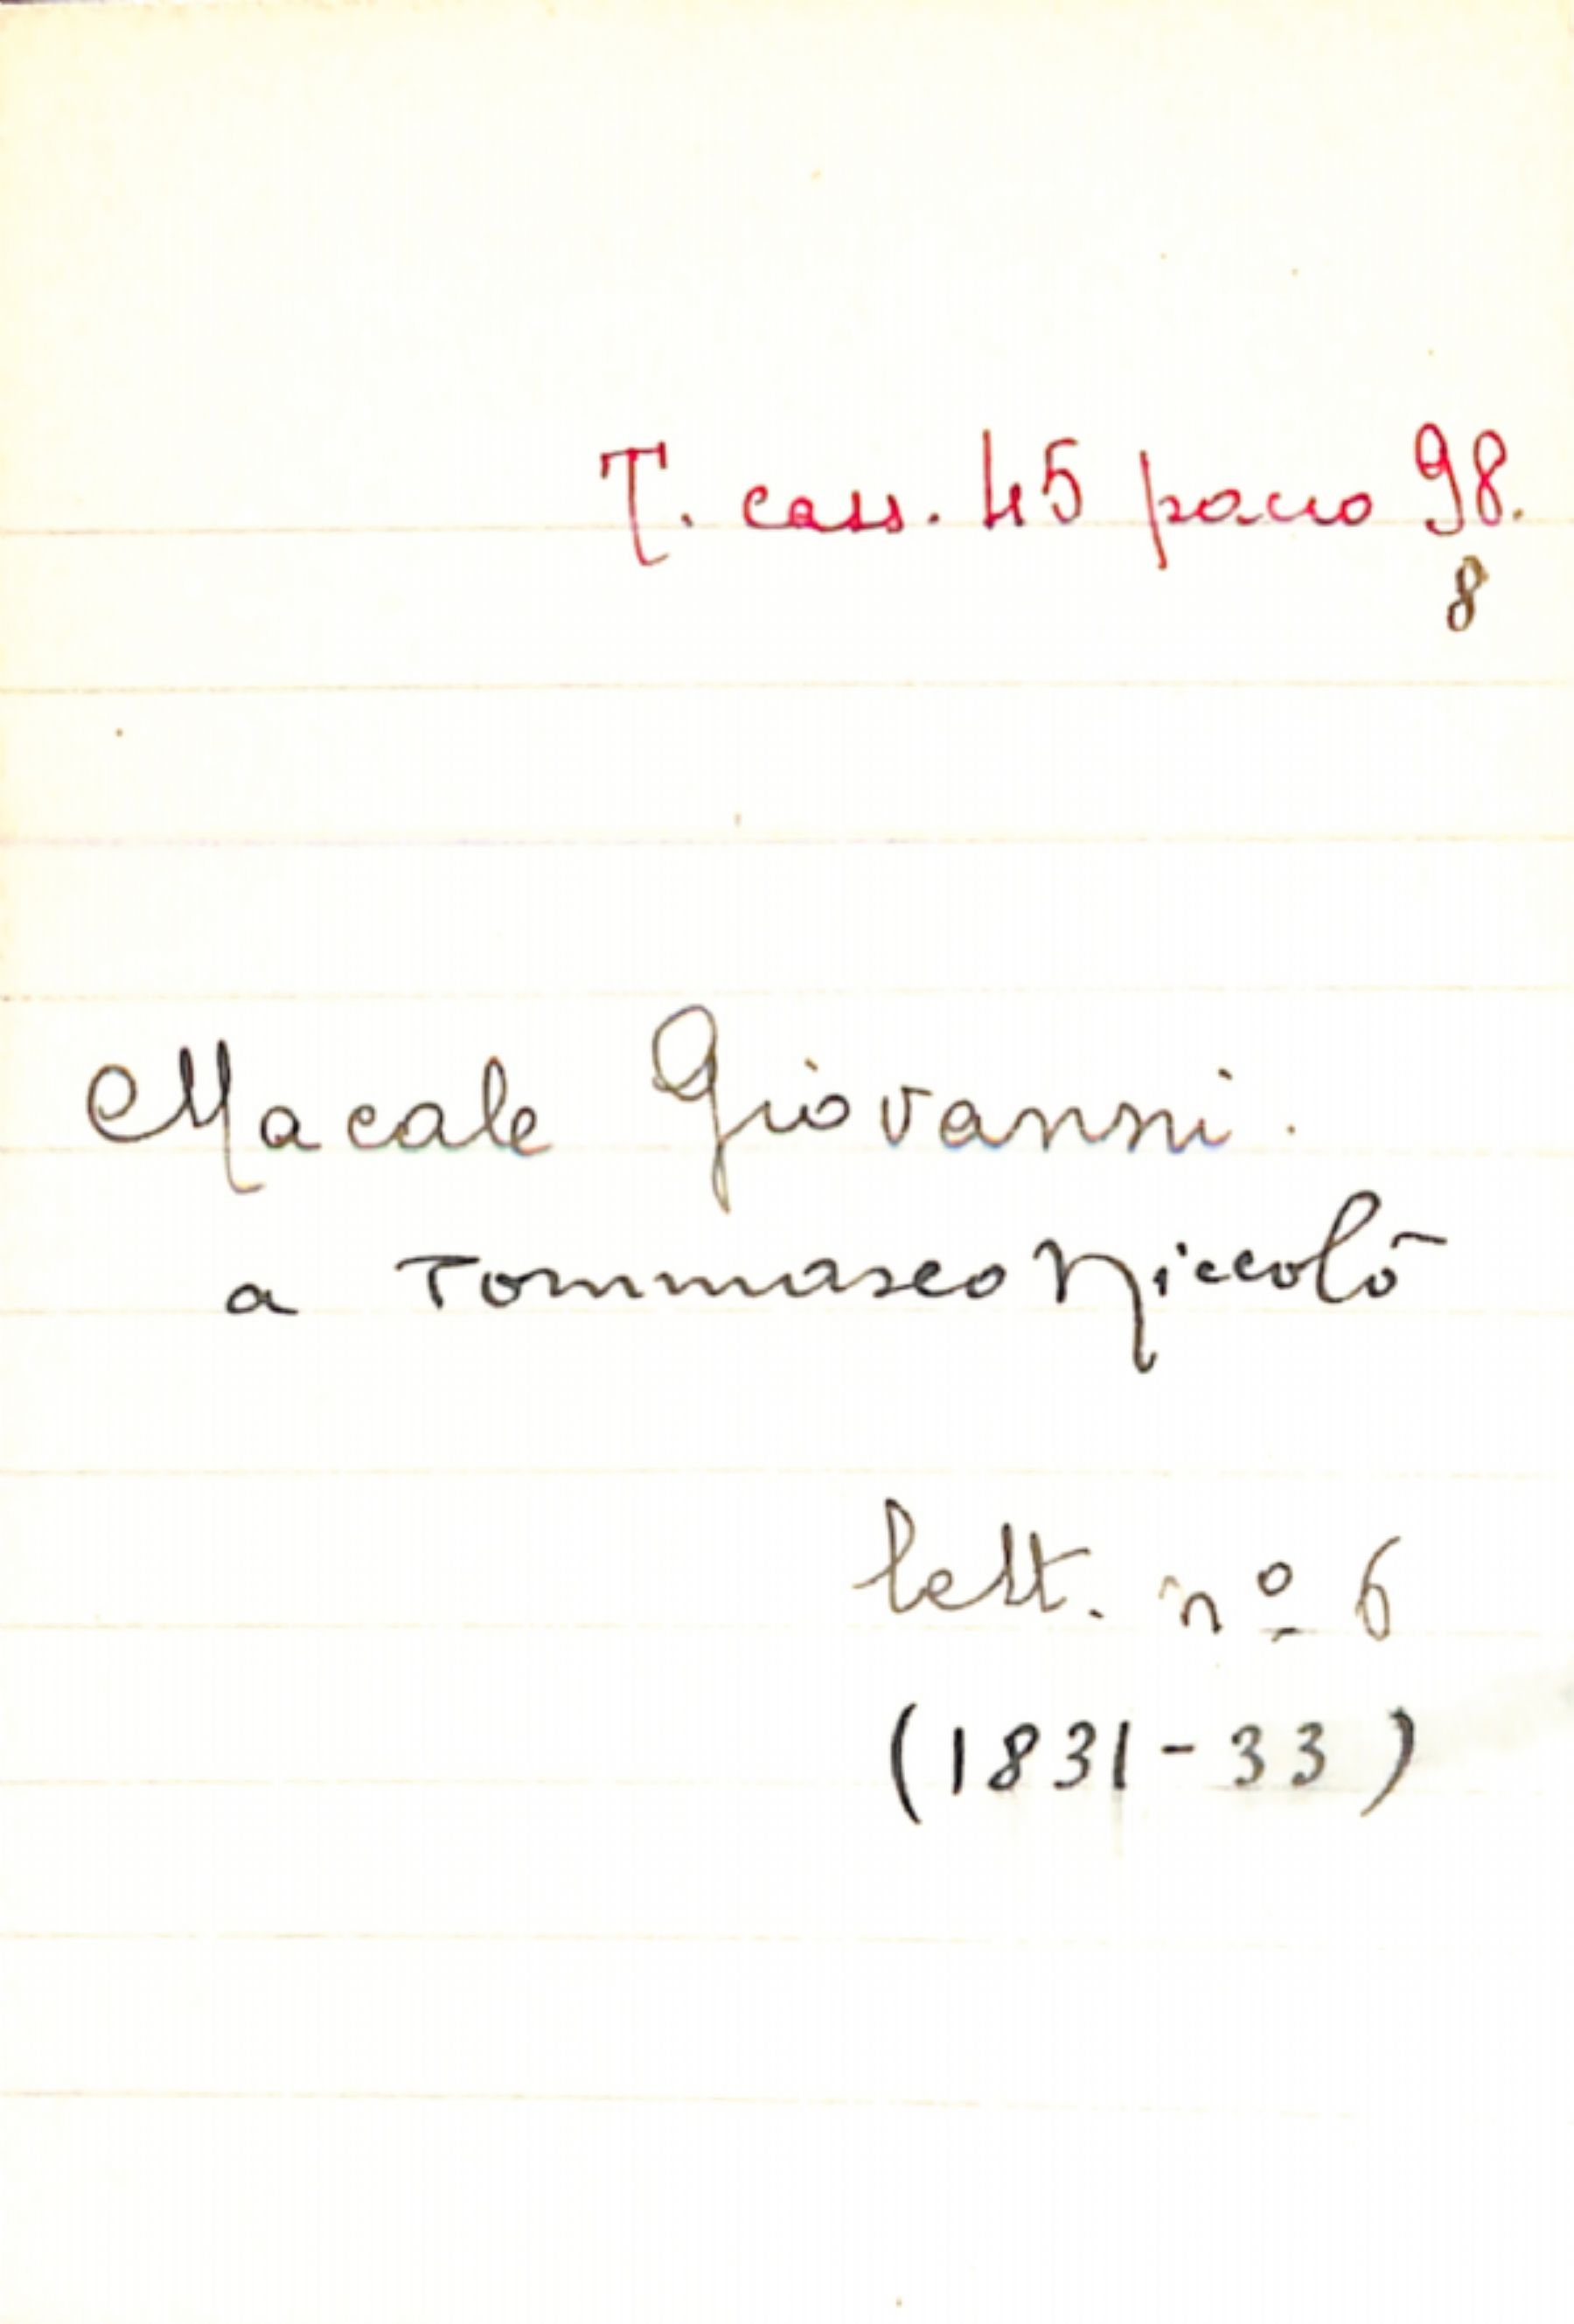 T. cass. 45 pacco 98.
8
Macale Giovanni.
a Tommaseo Niccolò
lett. nº 6
(1831-33)